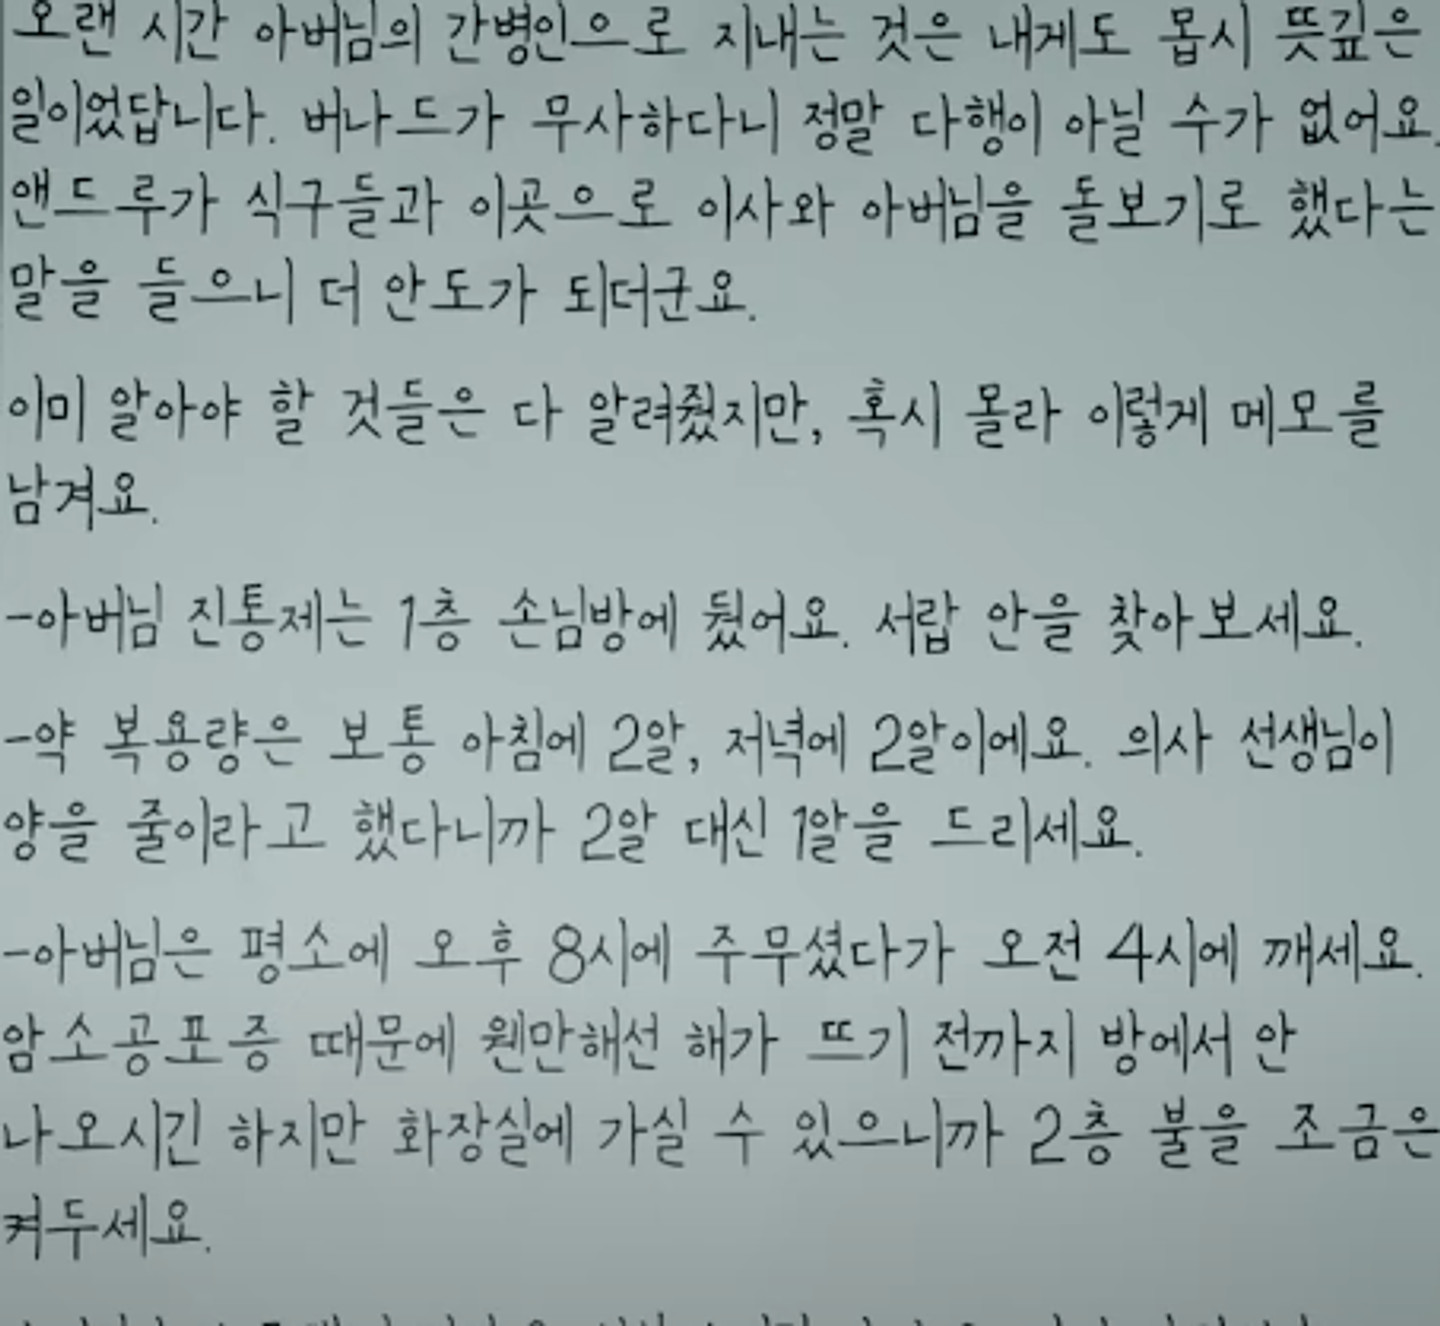 오랜 시간 아버님의 간병인으로 지내는 것은 내게도 몹시 뜻깊은
일이었답니다. 버나드가 무사하다니 정말 다행이 아닐 수가 없어요.
앤드루가 식구들과 이곳으로 이사와 아버님을 돌보기로 했다는
말을 들으니 더 안도가 되더군요.
이미 알아야 할 것들은 다 알려줬지만, 혹시 몰라 이렇게 메모를
남겨요.
-아버님 진통제는 1층 손님방에 뒀어요. 서랍 안을 찾아보세요.
-약 복용량은 보통 아침에 2알, 저녁에 2알이에요. 의사 선생님이
양을 줄이라고 했다니까 2알 대신 1알을 드리세요.
-아버님은 평소에 오후 8시에 주무셨다가 오전 4시에 깨세요.
암소공포증 때문에 웬만해선 해가 뜨기 전까지 방에서 안
나오시긴 하지만 화장실에 가실 수 있으니까 2층 불을 조금은
켜두세요.